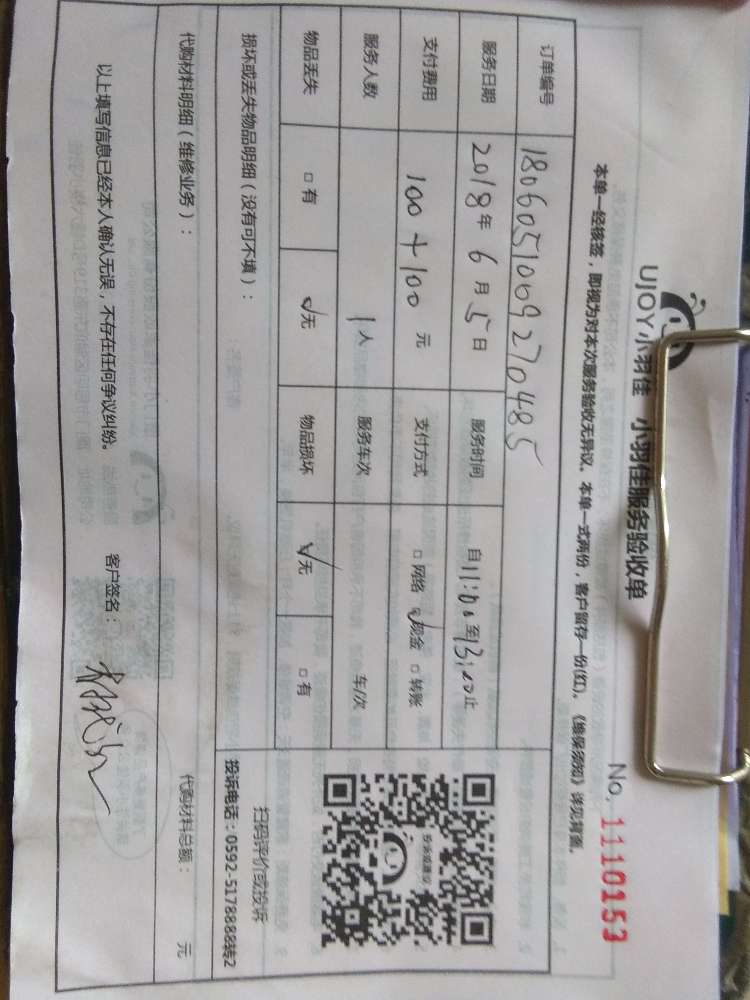 UJOY小羽佳 小羽佳服务验收单
No. 1110153
本单一经核签，即视为对本次服务验收无异议。本单一式两份，客户留存一份(红)。《维保须知》详见背面。
订单编号 1806051009270485
服务日期 2018年6月5日 服务时间 自11:00至13:00止
支付费用 100+100元 支付方式 □网络 √现金 □转账
服务人数 1人 服务车次 车/次
物品丢失 □有 √无 物品损坏 √无 □有
投诉或建议
扫码评价或投诉
投诉电话：0592-5178888转2
损坏或丢失物品明细（没有可不填）：
代购材料明细（维修业务）： 代购材料总额： 元
以上填写信息已经本人确认无误，不存在任何争议纠纷。 客户签名：